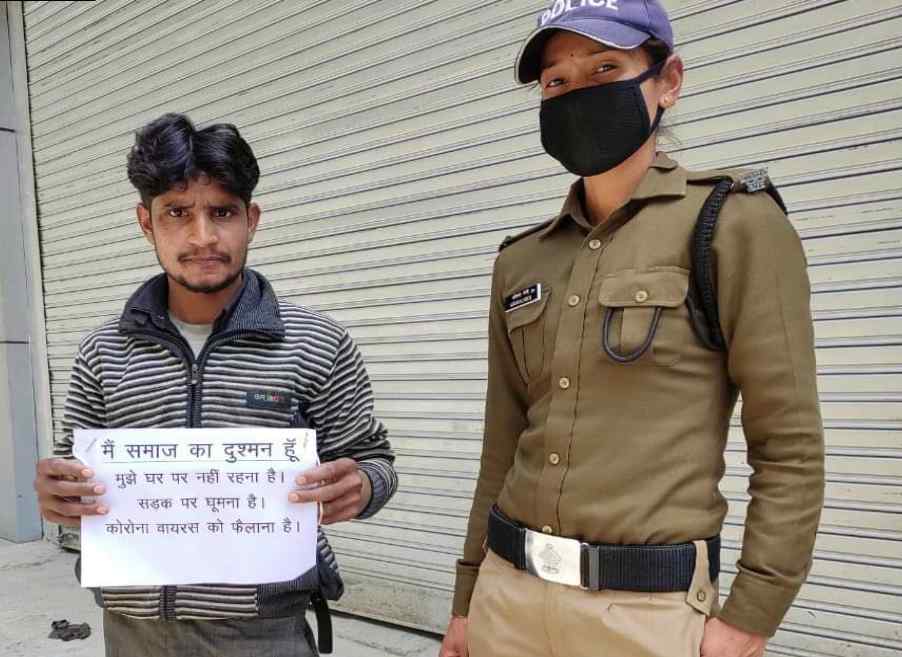 POLICE
मैं समाज का दुश्मन हूॅं
मुझे घर पर नहीं रहना है।
सड़क पर घूमना है।
कोरोना वायरस को फैलाना है।